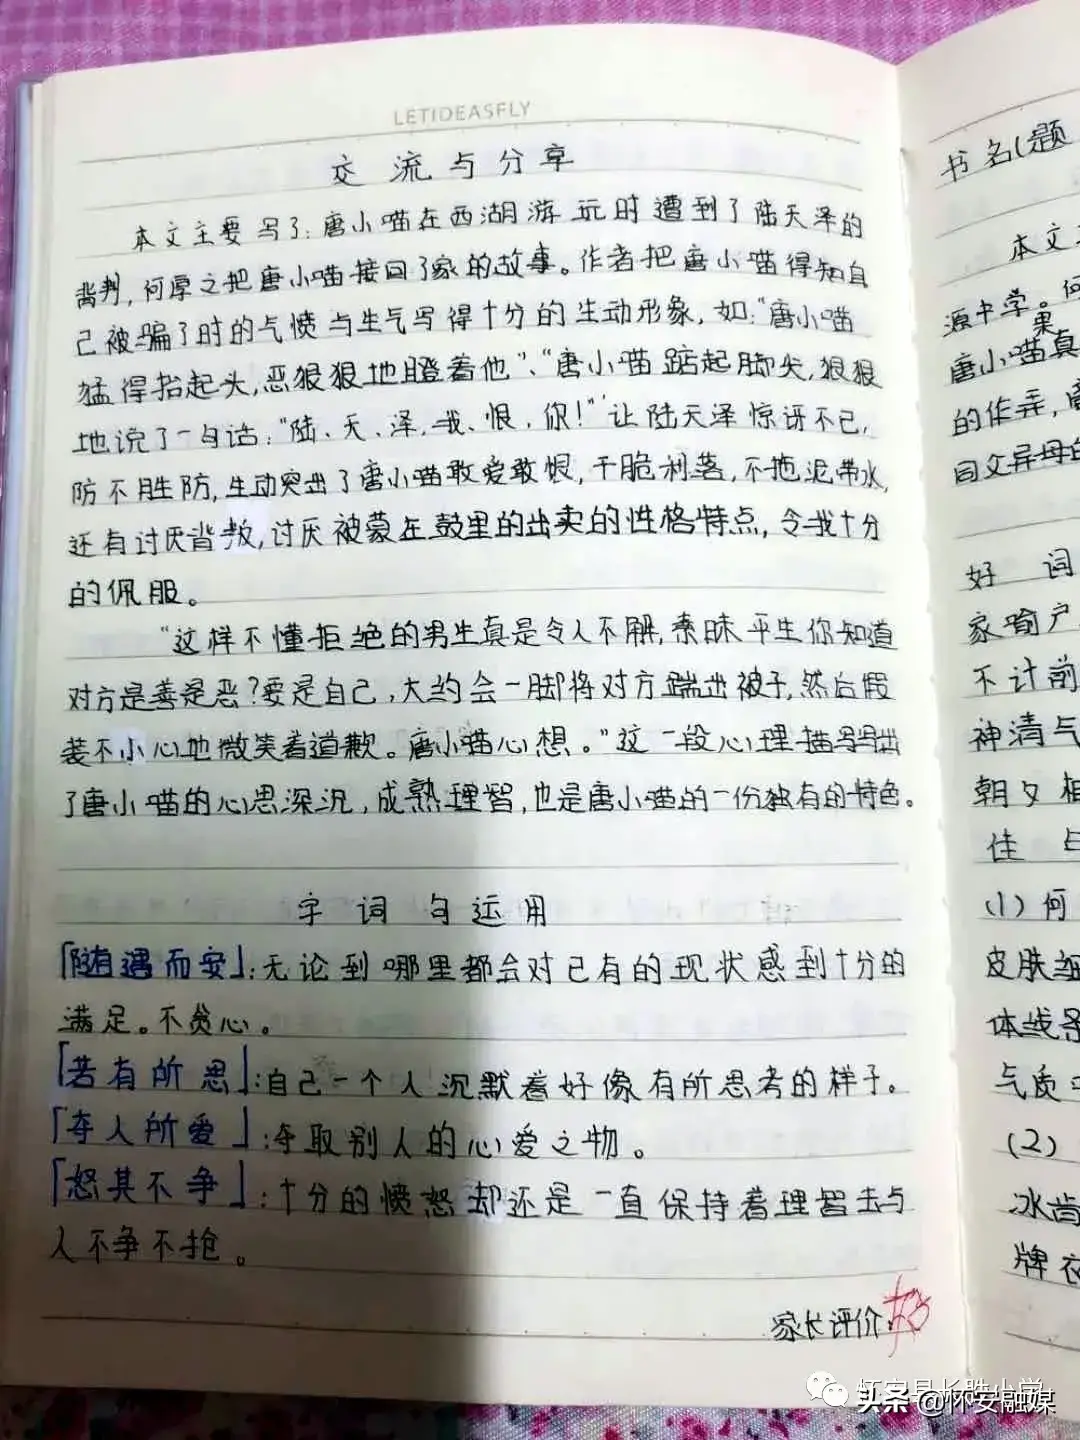 LETIDEASFLY
交流与分享
本文主要写了:唐小喵在西湖游玩时遭到了陆天泽的
背判,何厚之把唐小喵接回了家的故事。作者把唐小喵得知自
己被骗了时的气愤与生气写得十分的生动形象,如:“唐小喵
猛得抬起头,恶狠狠地瞪着他”、“唐小喵踮起脚尖,狠狠
地说了一句话:“陆、天、泽、我、恨、你!”让陆天泽惊讶不已,
防不胜防,生动突出了唐小喵敢爱敢恨,干脆利落,不拖泥带水,
还有讨厌背叛,讨厌被蒙在鼓里的出卖的性格特点,令我十分
的佩服。
“这样不懂拒绝的男生真是令人不解,素昧平生你知道
对方是善是恶?要是自己,大约会一脚将对方踹出被子,然后假
装不小心地微笑着道歉。唐小喵心想。”这一段心理描写写出
了唐小喵的心思深沉,成熟理智,也是唐小喵的一份独有的特色。
字词句运用
「随遇而安」:无论到哪里都会对已有的现状感到十分的
满足。不贪心。
「若有所思」:自己一个人沉默着好像有所思考的样子。
「夺人所爱」:夺取别人的心爱之物。
「怒其不争」:十分的愤怒却还是一直保持着理智去与
人不争不抢。
家长评价:
书名(题
本文
源中学。何
果
唐小喵真
的作弄,
同父异母的
好词
家喻户
不计前
神清气
朝夕相
佳
(1)何
皮肤细
体线条
气质
(2)
冰
牌衣
怀安县长胜小学
头条@怀安融媒